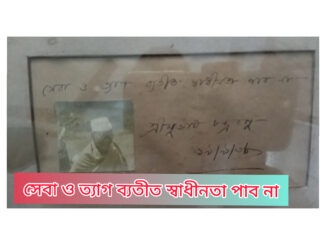 সেবা ও ত্যাগ ব্যতীত স্বাধীনতা পাব না
সেবা ও ত্যাগ ব্যতীত স্বাধীনতা পাব না